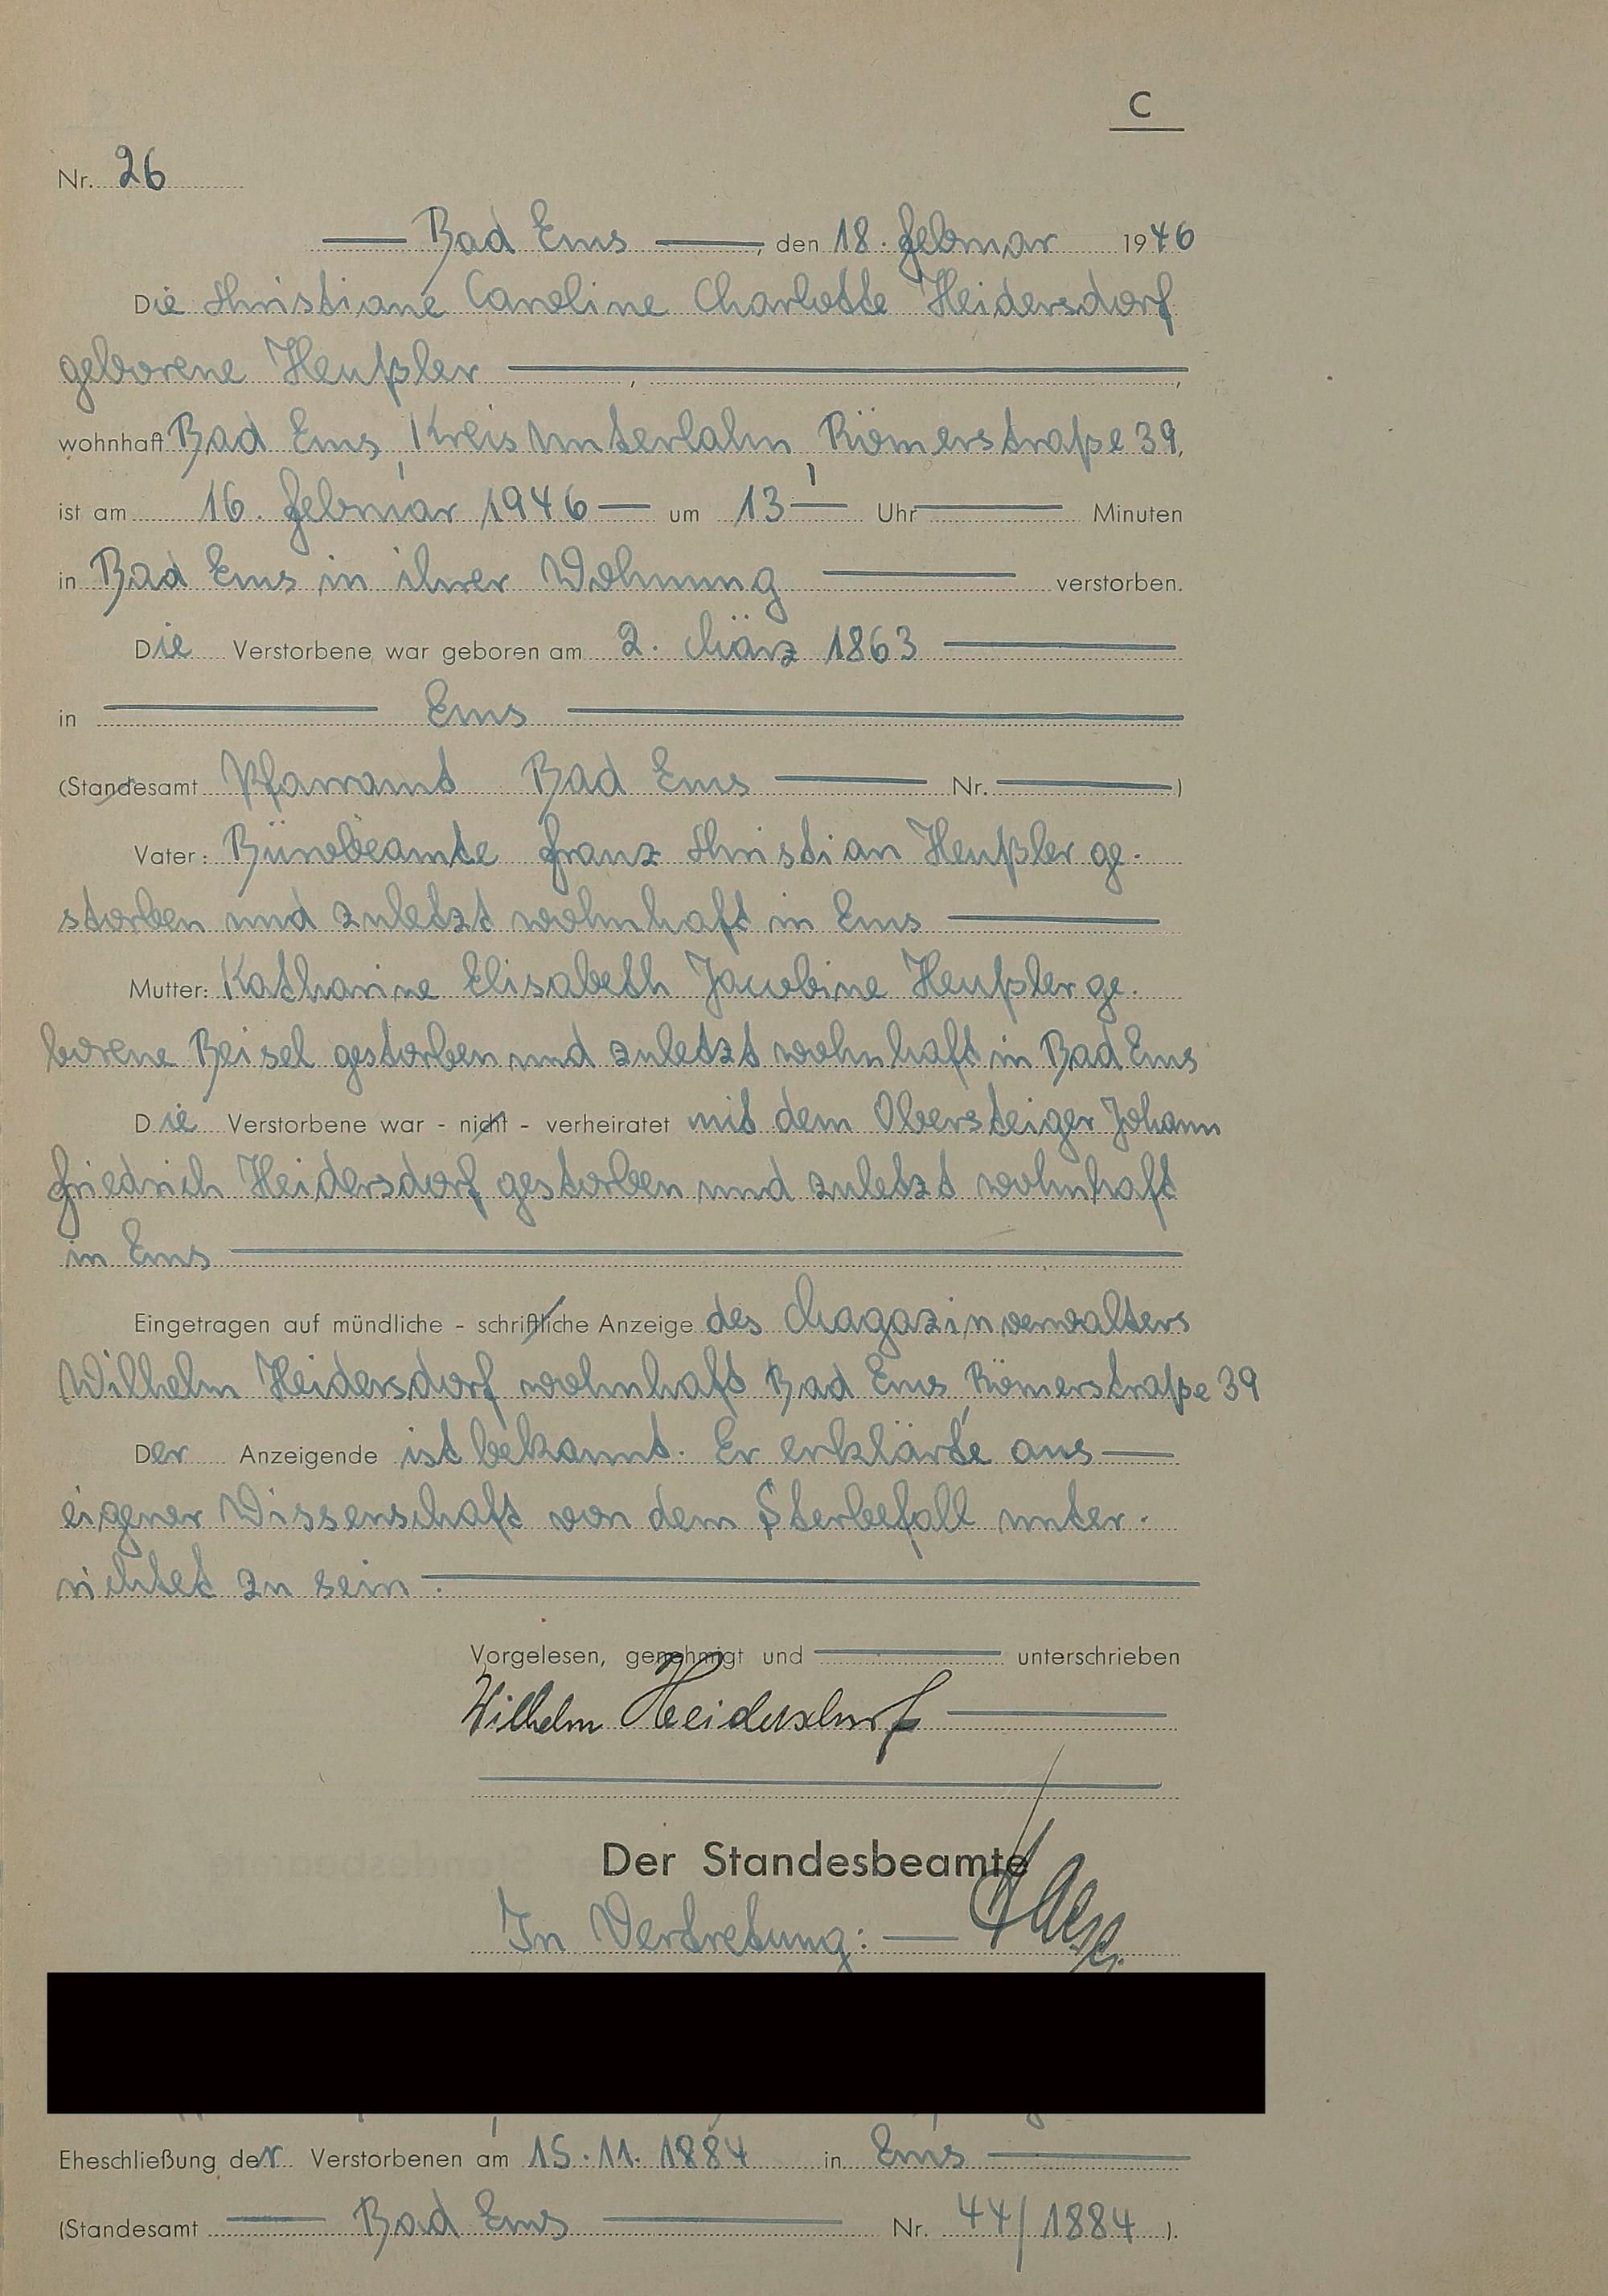 C
Nr. 26
Bad Ems, den 18. Februar 1946
Die Christiane Caroline Charlotte Heidersdorf
geborene Heußler , ,
wohnhaft Bad Ems, Kreis Unterlahn, Römerstraße 39,
ist am 16. Februar 1946 um 13 Uhr Minuten
in Bad Ems in ihrer Wohnung verstorben.
Die Verstorbene war geboren am 2. März 1863
in Ems
(Standesamt Pfarramt Bad Ems Nr. )
Vater: Bürobeamte Franz Christian Heußler ge-
storben und zuletzt wohnhaft in Ems
Mutter: Katharine Elisabeth Jacobine Heußler ge-
borene Beisel gestorben und zuletzt wohnhaft in Bad Ems
Die Verstorbene war - nicht - verheiratet mit dem Obersteiger Johann
Friedrich Heidersdorf gestorben und zuletzt wohnhaft
in Ems
Eingetragen auf mündliche - schriftliche Anzeige des Magazinverwalters
Wilhelm Heidersdorf wohnhaft Bad Ems, Römerstraße 39
Der Anzeigende ist bekannt. Er erklärte aus
eigener Wissenschaft von dem Sterbefall unter-
richtet zu sein.
Vorgelesen, genehmigt und unterschrieben
Wilhelm Heidersdorf
Der Standesbeamte
In Vertretung:
Eheschließung der Verstorbenen am 15.11.1884 in Ems
(Standesamt Bad Ems Nr. 44/1884 ).